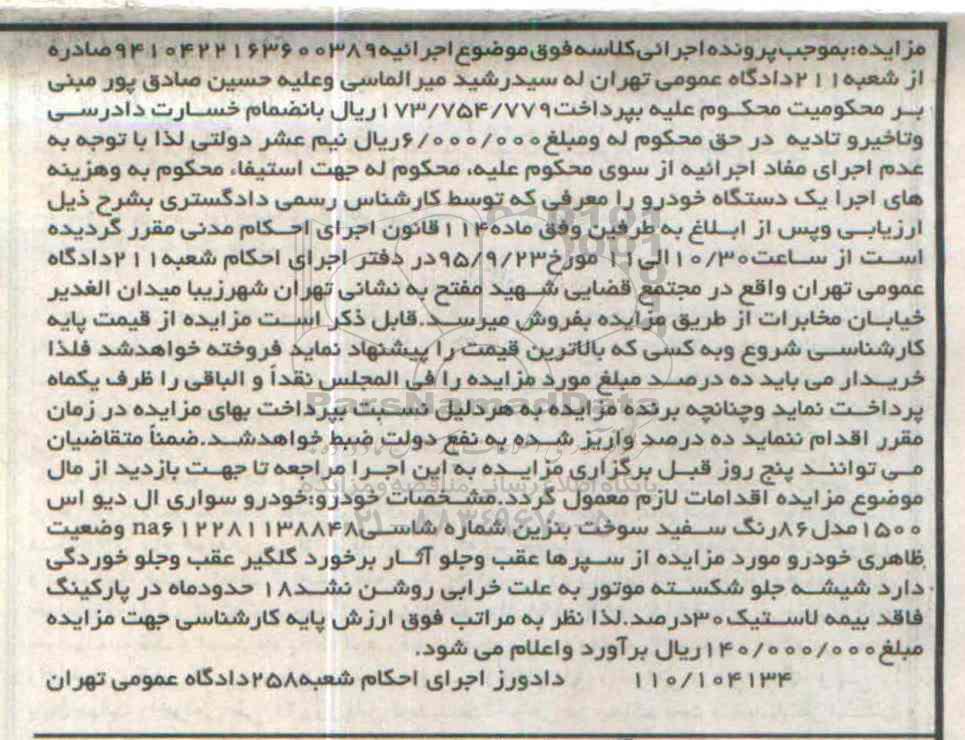 مزایده:بموجب پرونده اجرائی کلاسه فوق موضوع اجرائیه ۹۴۱۰۴۲۲۱۶۳۶۰۰۳۸۹ صادره
از شعبه ۲۱۱ دادگاه عمومی تهران له سیدرشید میرالماسی وعلیه حسین صادق پور مبنی
بر محکومیت محکوم علیه بپرداخت ۱۷۳/۷۵۴/۷۷۹ ریال بانضمام خسارت دادرسی
وتاخیرو تادیه در حق محکوم له ومبلغ ۶/۰۰۰/۰۰۰ ریال نیم عشر دولتی لذا با توجه به
عدم اجرای مفاد اجرائیه از سوی محکوم علیه، محکوم له جهت استیفاء محکوم به وهزینه
های اجرا یک دستگاه خودرو را معرفی که توسط کارشناس رسمی دادگستری بشرح ذیل
ارزیابی وپس از ابلاغ به طرفین وفق ماده ۱۱۴ قانون اجرای احکام مدنی مقرر گردیده
است از ساعت ۱۰/۳۰ الی ۱۱ مورخ ۹۵/۹/۲۳ در دفتر اجرای احکام شعبه ۲۱۱ دادگاه
عمومی تهران واقع در مجتمع قضایی شهید مفتح به نشانی تهران شهرزیبا میدان الغدیر
خیابان مخابرات از طریق مزایده بفروش میرسد.قابل ذکر است مزایده از قیمت پایه
کارشناسی شروع وبه کسی که بالاترین قیمت را پیشنهاد نماید فروخته خواهدشد فلذا
خریدار می باید ده درصد مبلغ مورد مزایده را فی المجلس نقداً و الباقی را ظرف یکماه
پرداخت نماید وچنانچه برنده مزایده به هردلیل نسبت بپرداخت بهای مزایده در زمان
مقرر اقدام ننماید ده درصد واریز شده به نفع دولت ضبط خواهدشد.ضمناً متقاضیان
می توانند پنج روز قبل برگزاری مزایده به این اجرا مراجعه تا جهت بازدید از مال
موضوع مزایده اقدامات لازم معمول گردد.مشخصات خودرو:خودرو سواری ال دیو اس
۱۵۰۰ مدل ۸۶ رنگ سفید سوخت بنزین شماره شاسی na۶۱۲۲۸۱۱۳۸۸۴۸ وضعیت
ظاهری خودرو مورد مزایده از سپرها عقب وجلو آثار برخورد گلگیر عقب وجلو خوردگی
دارد شیشه جلو شکسته موتور به علت خرابی روشن نشد ۱۸ حدودماه در پارکینگ
فاقد بیمه لاستیک ۳۰ درصد.لذا نظر به مراتب فوق ارزش پایه کارشناسی جهت مزایده
مبلغ ۱۴۰/۰۰۰/۰۰۰ ریال برآورد واعلام می شود.
۱۱۰/۱۰۴۱۳۴ دادورز اجرای احکام شعبه ۲۵۸ دادگاه عمومی تهران
ParsNamadData